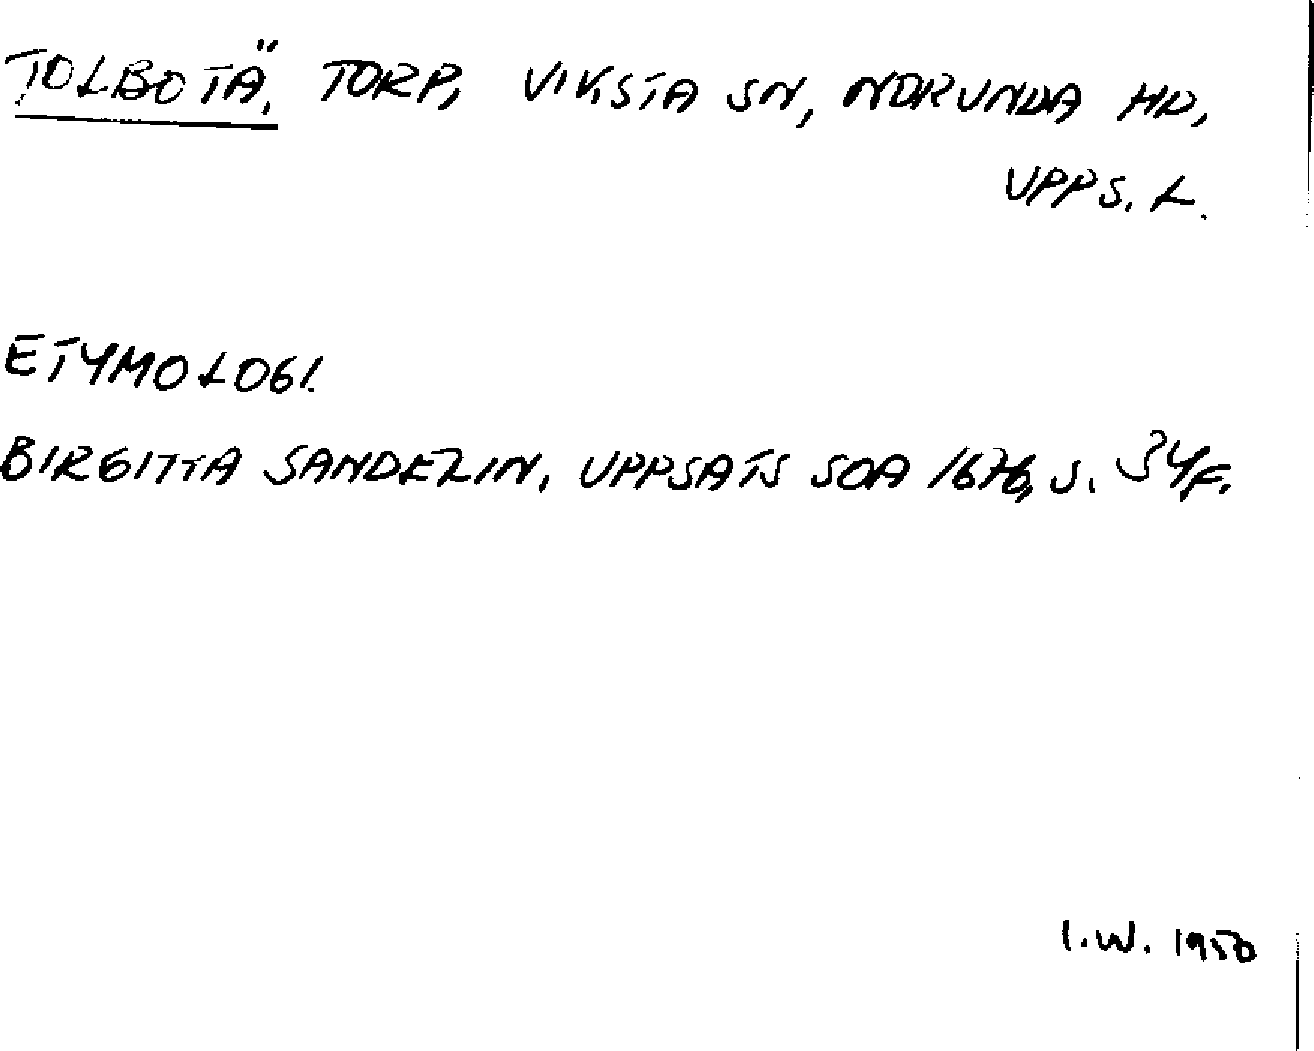 TOLBOTÄ, TORP, VIKSTA SN, NORUNDA HD,
UPPS. L.
ETYMOLOGI.
BIRGITTA SANDELIN, UPPSATS SOA 1676, S. 34F.
I.W. 1950